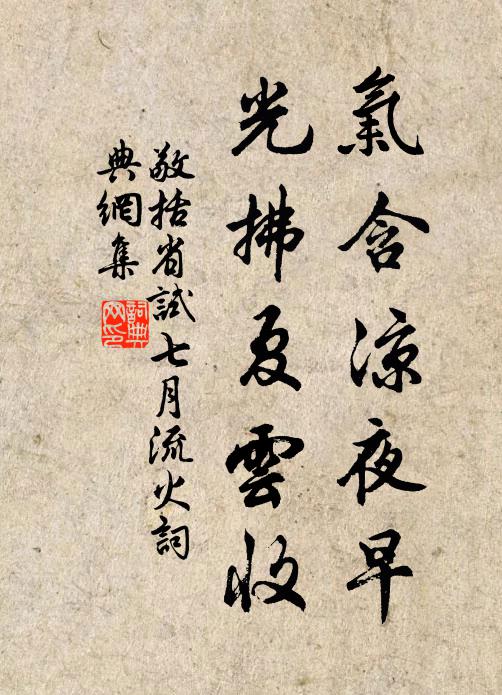 氣含涼夜早
光拂夏雲收
敬括省試七月流火詞
典網集
詞典
网印